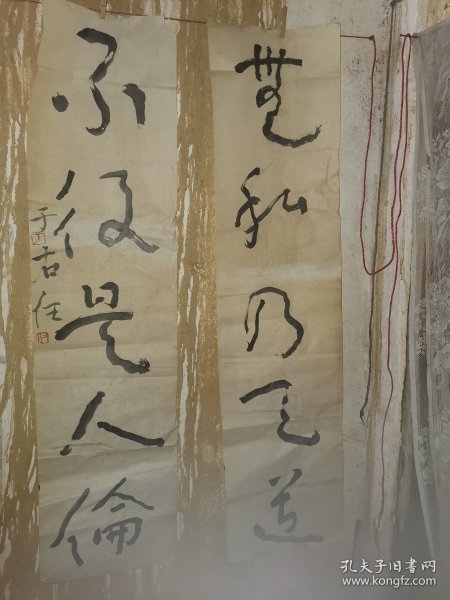 無私乃天道
不役是人倫
于右任
孔夫子旧书网
www.kongfz.com